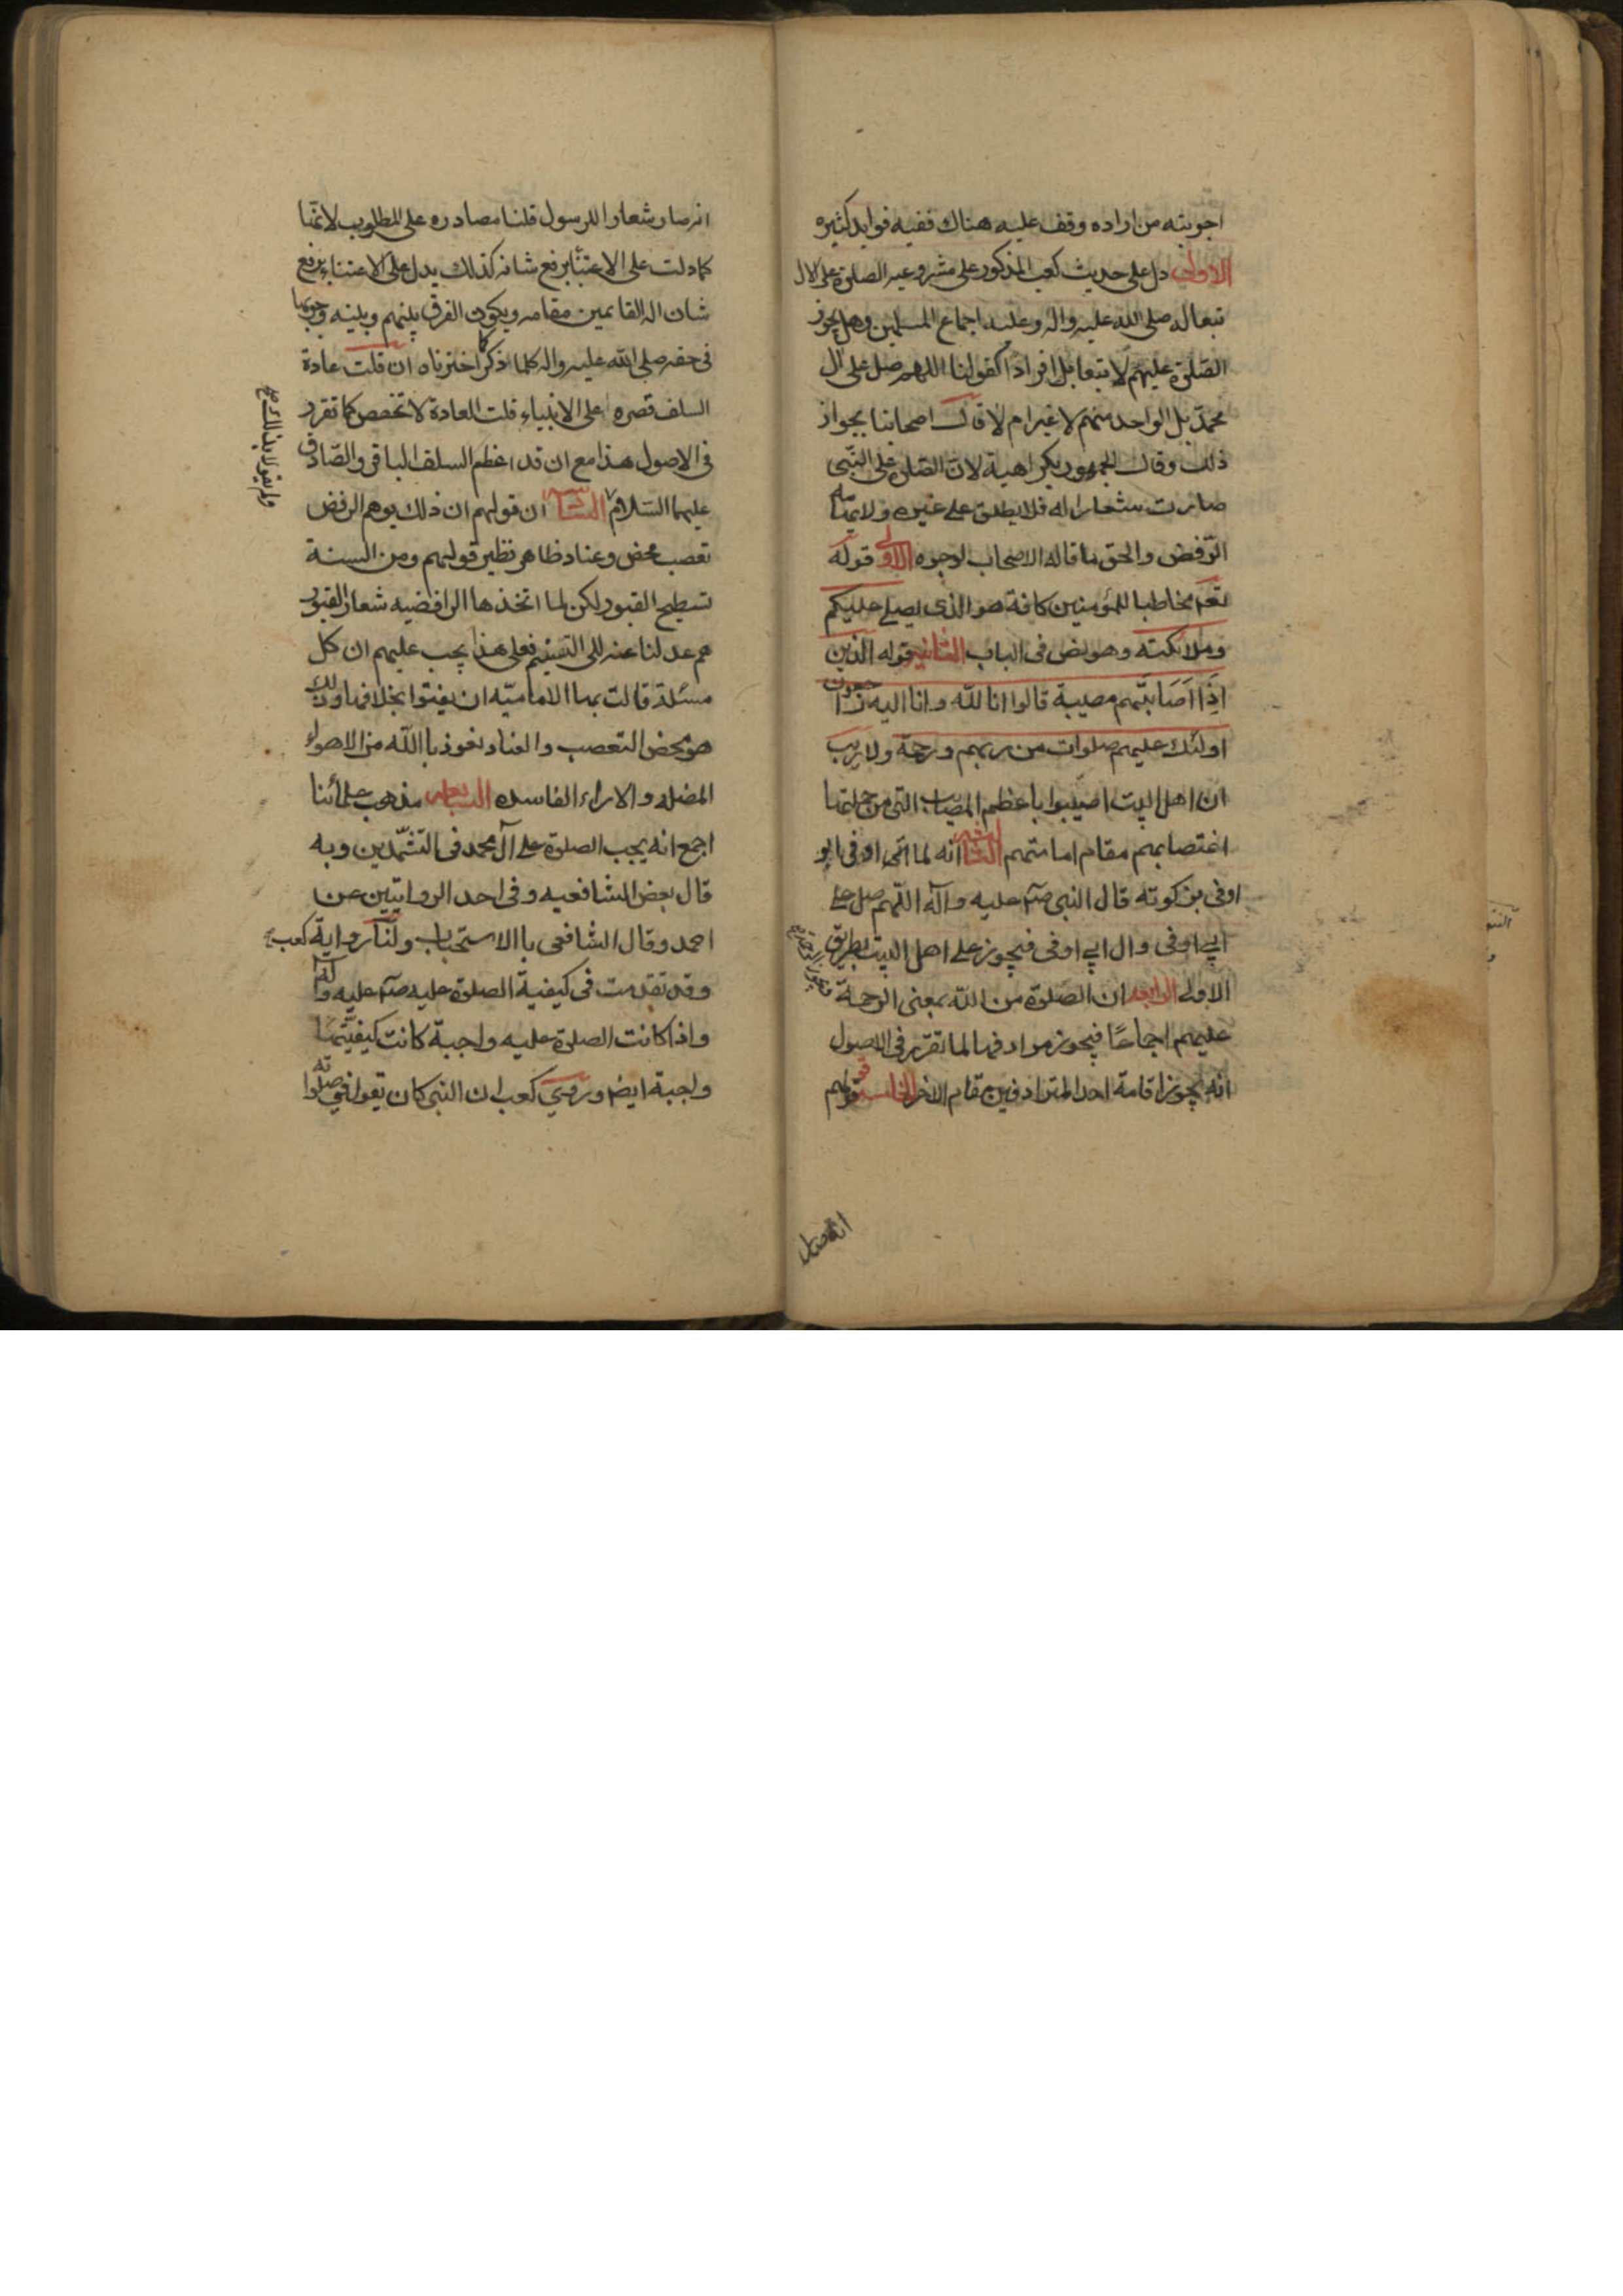 اجوبته من اراده وقف عليه هناك ففيه فوايد كثيره
الاولى دل على حديث كعب المذكور على مشروعيه الصلوة على الال
تبعا له صلى الله عليه واله وعليه اجماع المسلمين وهل يجوز
الصلوة عليهم لا تبعا بل افرادا كقولنا اللهم صل على ال
محمد بل الواحد منهم لا غير ام لا قال اصحابنا بجواز
ذلك وقال الجمهور بكراهية لان الصلوة على النبى
صارت شعارا له فلا يطلق على غيره ولا
الرفض والحق ما قاله الاصحاب لوجوه الاولى قوله
تعم مخاطبا للمؤمنين كافة هو الذى يصلى عليكم
وملائكته وهو نص فى الباب الثانيه قوله الذين
اذا اصابتهم مصيبة قالوا انا لله وانا اليه راجعون
اولئك عليهم صلوات من ربهم ورحمة ولا ريب
ان اهل البيت اصيبوا باعظم المصايب التى من جملتها
اغتصابهم مقام امامتهم الثالثه انه لما اتى اوفى ابو
اوفى بزكوته قال النبى صلم عليه وآله اللهم صل على
ابي اوفى وال ابي اوفى فيجوز على اهل البيت بطريق
الاولى الرابعه ان الصلوة من الله بمعنى الرحمة
عليهم اجماعا فيجوز مرادفها لما تقرر فى الاصول
انه يجوز اقامة احد المترادفين مقام الاخر الخامسه قولهم
انه صار
انه صار شعار الرسول قلنا مصادره على المطلوب لانها
كما دلت على الاعتناء برفع شانه كذلك يدل على الاعتناء برفع
شان اله القايمين مقامه ويكون الفرق بينهم وبينه وجوبها
فى حقه صلى الله عليه واله كلما ذكر كما اخترناه ان قلت عادة
السلف قصره على الانبياء قلت العادة لا تخصص كما تقرر
فى الاصول هذا مع ان قد اعظم السلف الباقر والصادق
عليهما السلام السادسه ان قولهم ان ذلك يوهم الرفض
تعصب محض وعناد ظاهر نظير قولهم ومن السنة
تسطيح القبور لكن لما اتخذها الرافضيه شعار القبور
هم عدلنا عنه الى التسنيم فعلى هذا يجب عليهم ان كل
مسئلة قالت بها الاماميه ان يفتوا بخلافها وذلك
هو محض التعصب والعناد نعوذ بالله من الاهواء
المضله والاراء الفاسده السابعه مذهب علمائنا
اجمع انه يجب الصلوة على آل محمد فى التشهدين وبه
قال بعض الشافعيه وفى احد الروايتين عن
احمد وقال الشافعى باالاستحباب ولنا رواية كعب
وقد تقدمت فى كيفية الصلوة عليه صلم عليه وآله
واذا كانت الصلوة عليه واجبة كانت كيفيتها
واجبة ايض وروي كعب ان النبى كان يقول فى صلوته
ولم يقولا بذلك